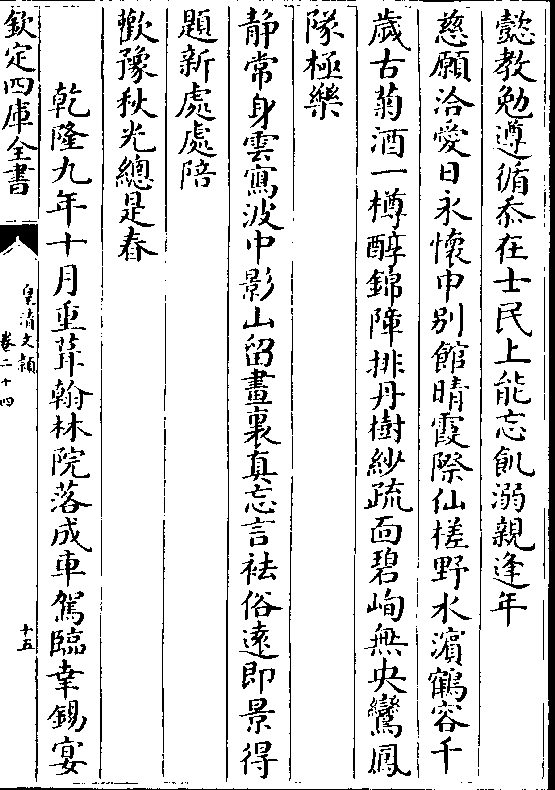 懿教勉遵循忝在士民上能忘飢溺親逢年
慈願洽愛日永懷申别館晴霞際仙槎野水濵鶴容千
歲古菊酒一樽醇錦障排丹樹紗疏面碧峋無央鸞鳳
隊極樂
静常身雲寫波中影山留畫裏真忘言袪俗遠即景得
題新處處陪
歡豫秋光總是春
乾隆九年十月重葺翰林院落成車駕臨幸錫宴
欽定四庫全書
皇清文頴
卷二十四
十五